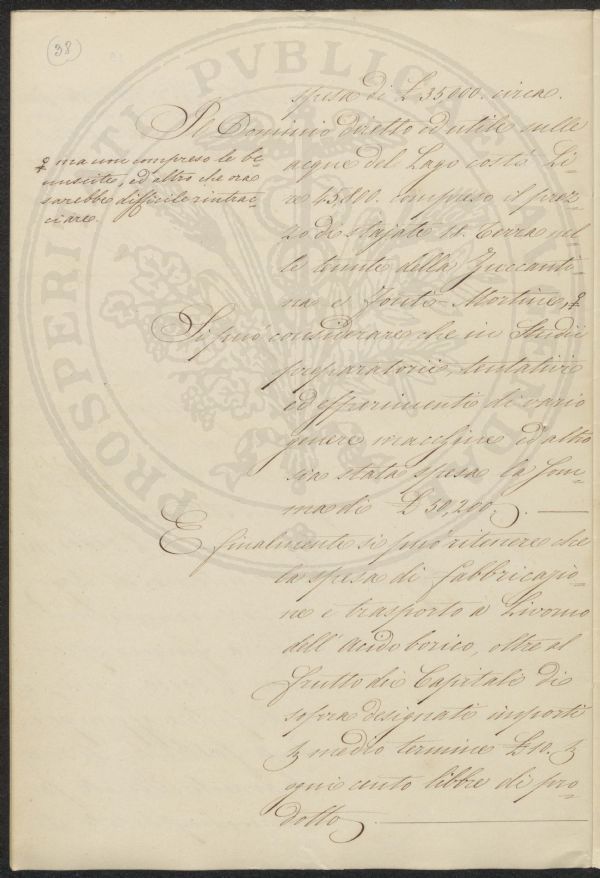 38
spesa di £ 35000. circa.
Il Dominio diretto ed utile sulle
acque del Lago costò Li-
re 45,800. compreso il prez-
zo di stajate 11. terra nel-
le tenute della Zuccanti-
na e Fonte-Martino, ♀
♀ ma non compreso le be-
nuscite, ed altro che ora
sarebbe difficile rintrac-
ciare.
Si può considerare che in Studii
preparatorii, tentativi
ed esperimenti di vario
genere macchine ed altro
sia stata spesa la Som-
ma di £ 50,200.
E finalmente si può ritenere che
la spesa di fabbricazio-
ne e trasporto a Livorno
dell' Acido borico, oltre al
frutto dei Capitali di
sopra designati importi
medio termine £ 10.
ogni cento libbre di pro-
dotto
PROSPERITATI PVBLICAE